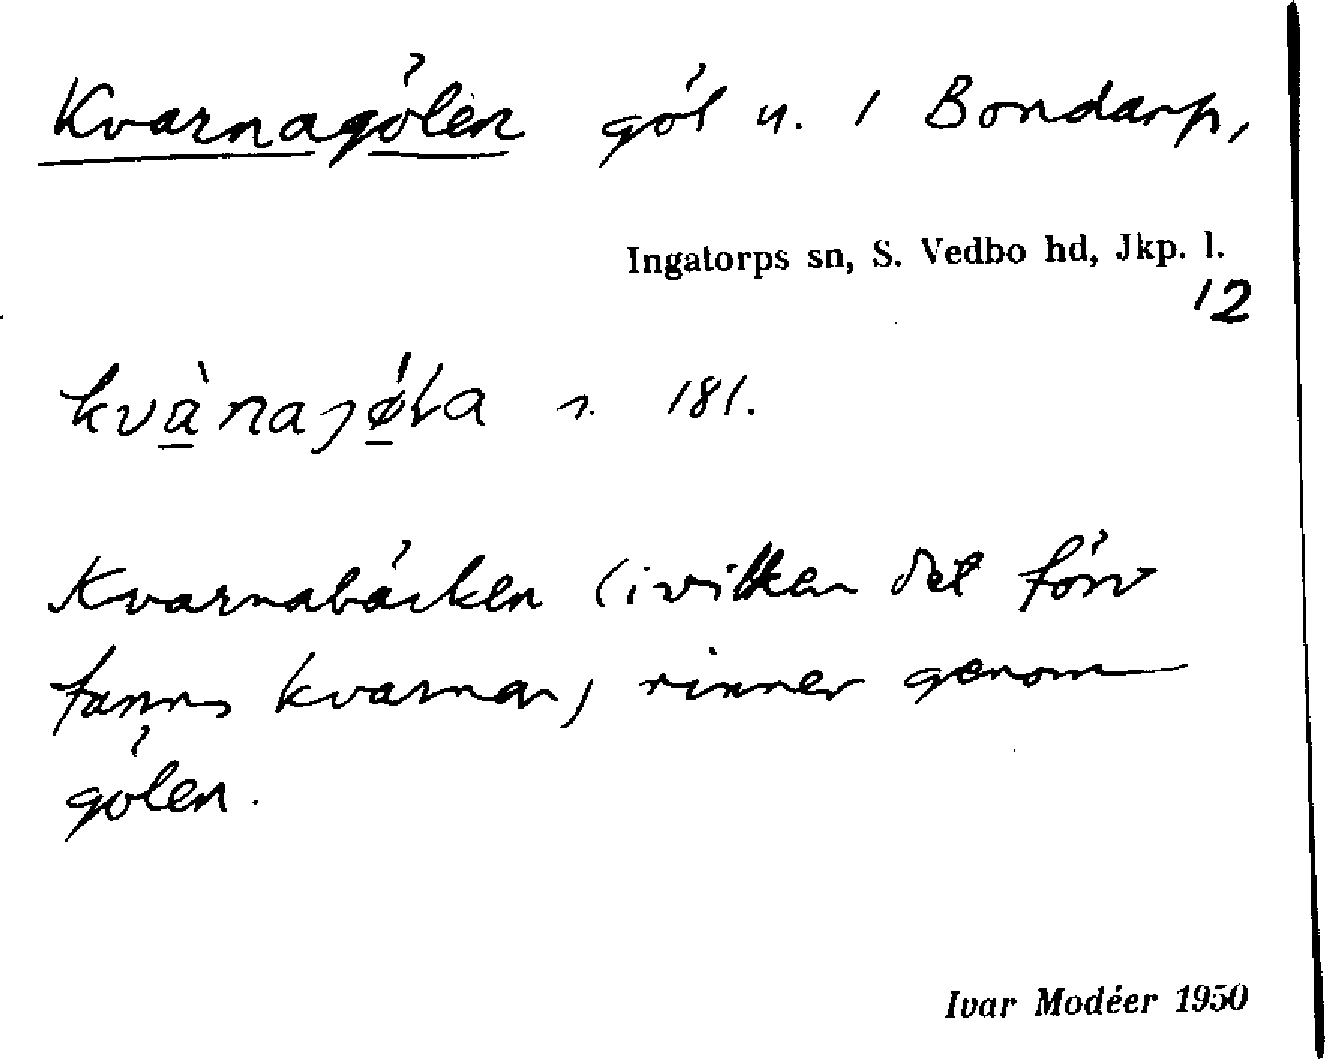 Kvarnagölen göl n. i Bondarp,
Ingatorps sn, S. Vedbo hd, Jkp. l.
12
kvànajǿla n. 181.
Kvarnabäcken (i vilken det förr
fanns kvarnar) rinner genom
gölen.
Ivar Modéer 1950